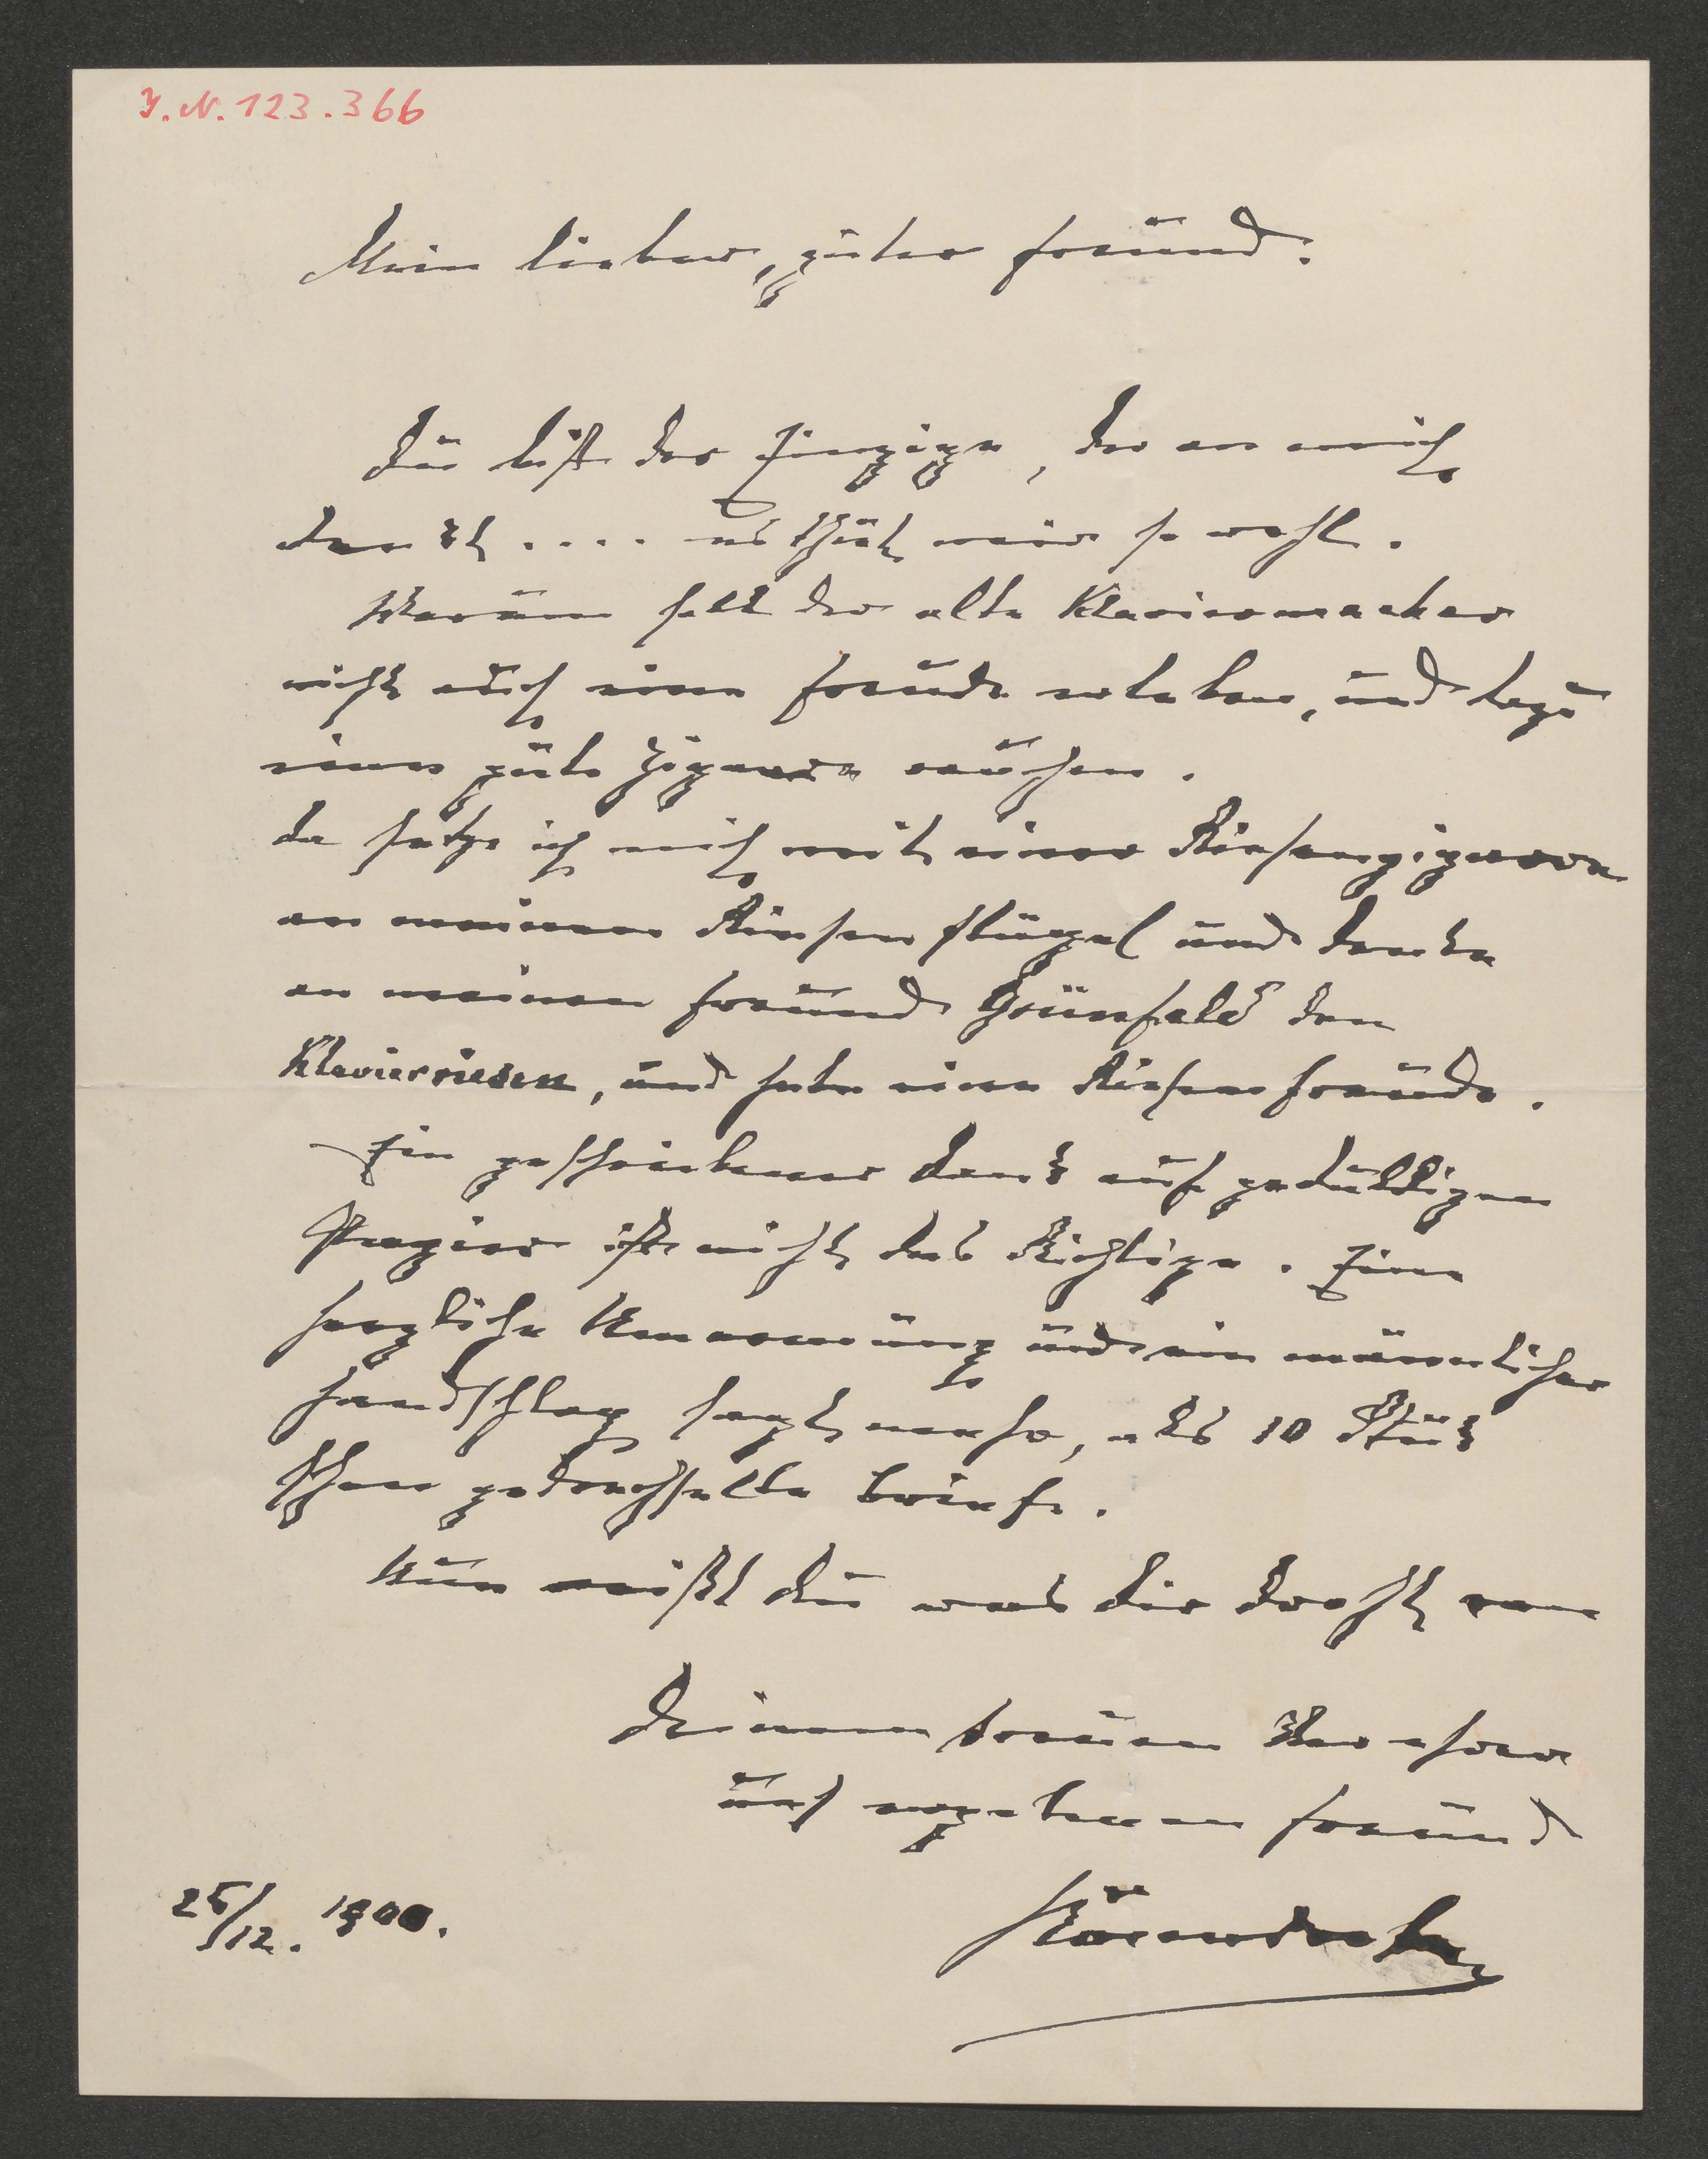 J. N. 123.366
Mein lieber, guter Freund.
Du bist der Einzige, der an mich
denkt .... es thut mir so wohl.
Warum soll der alte Klaviermacher
nicht auch eine Freude erleben, und dazu
eine gute Zigarre rauchen.
Da setze ich mich mit einer Riesenzigarre
an meinen Riesenflügel und denke
an meinen Freund Grünfeld den
Klavierriesen, und habe eine Riesenfreude.
Ein geschriebener Dank auf geduldigem
Papier ist nicht das Richtige. Eine
herzliche Umarmung und ein männlicher
Handschlag sagt mehr, als 10 Stük
schön gedrechselte Briefe.
Nun weißt Du was Dir droht von
Deinem treuen Verehrer
und ergebenen Freund
Bösendorfer
25/12. 1900.